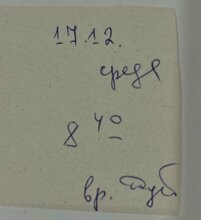 17.12.
среда
8 40
вр.